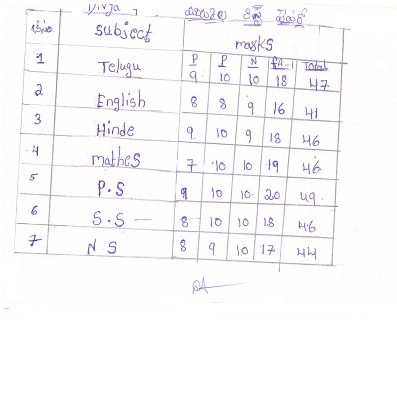 Divya
Subject marks
P P N FA-1 Total
1 Telugu 9 10 10 18 47
2 English 8 8 9 16 41
3 Hinde 9 10 9 18 46
4 mathes 7 10 10 19 46
5 P.S 9 10 10 20 49
6 S.S — 8 10 10 18 46
7 N S 8 9 10 17 44